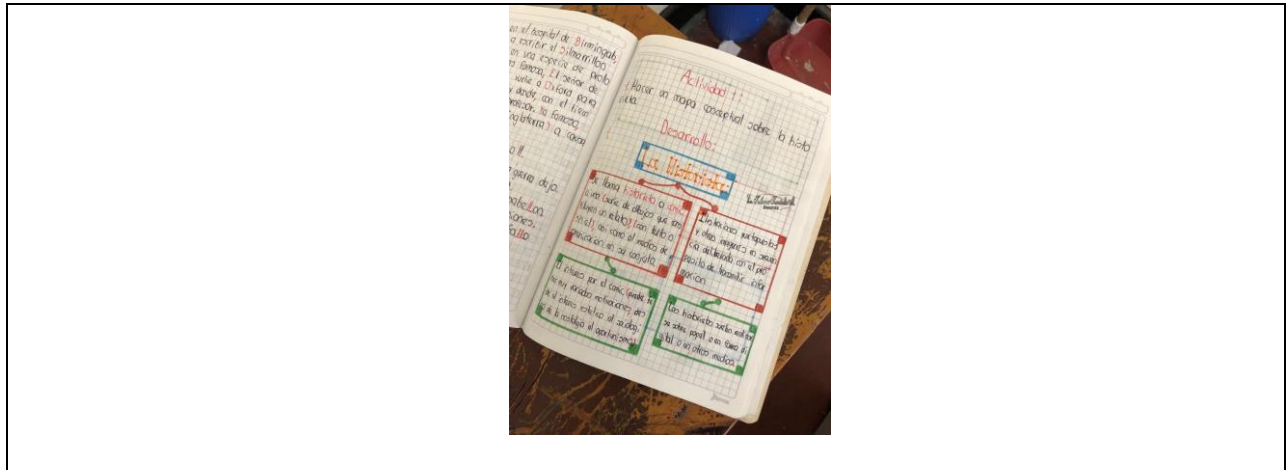 en el hospital de Birmingah,
a escribir el Silmarrillon
en una especie de prolo
famosa, El señor de
vuelve a Oxford para
donde, con el tiem
profesor. la famosa,
Inglaterra) a causa
a II.
guerra dejo.
batallon
siones.
fallo
Actividad 1:
Hacer un mapa conceptual sobre la histo
rieta.
Desarrollo:
La Historieta:
Se llama historieta o comic
a una serie de dibujos que cons
tituyen un relato, con texto o
sin el, asi como al medio de
comunicacion en su conjunto
Ilustraciones yuxtapuestas
y otras imagenes en secuen
cia deliberada con el pro
posito de transmitir infor
macion
El interes por el comic puede te
ner muy variadas motivaciones, des
de el interes estetico al sociolog
de la nostalgia al oportunismo
Las historietas suelen realizar
se sobre papel, o en forma di
gital o en otros medios